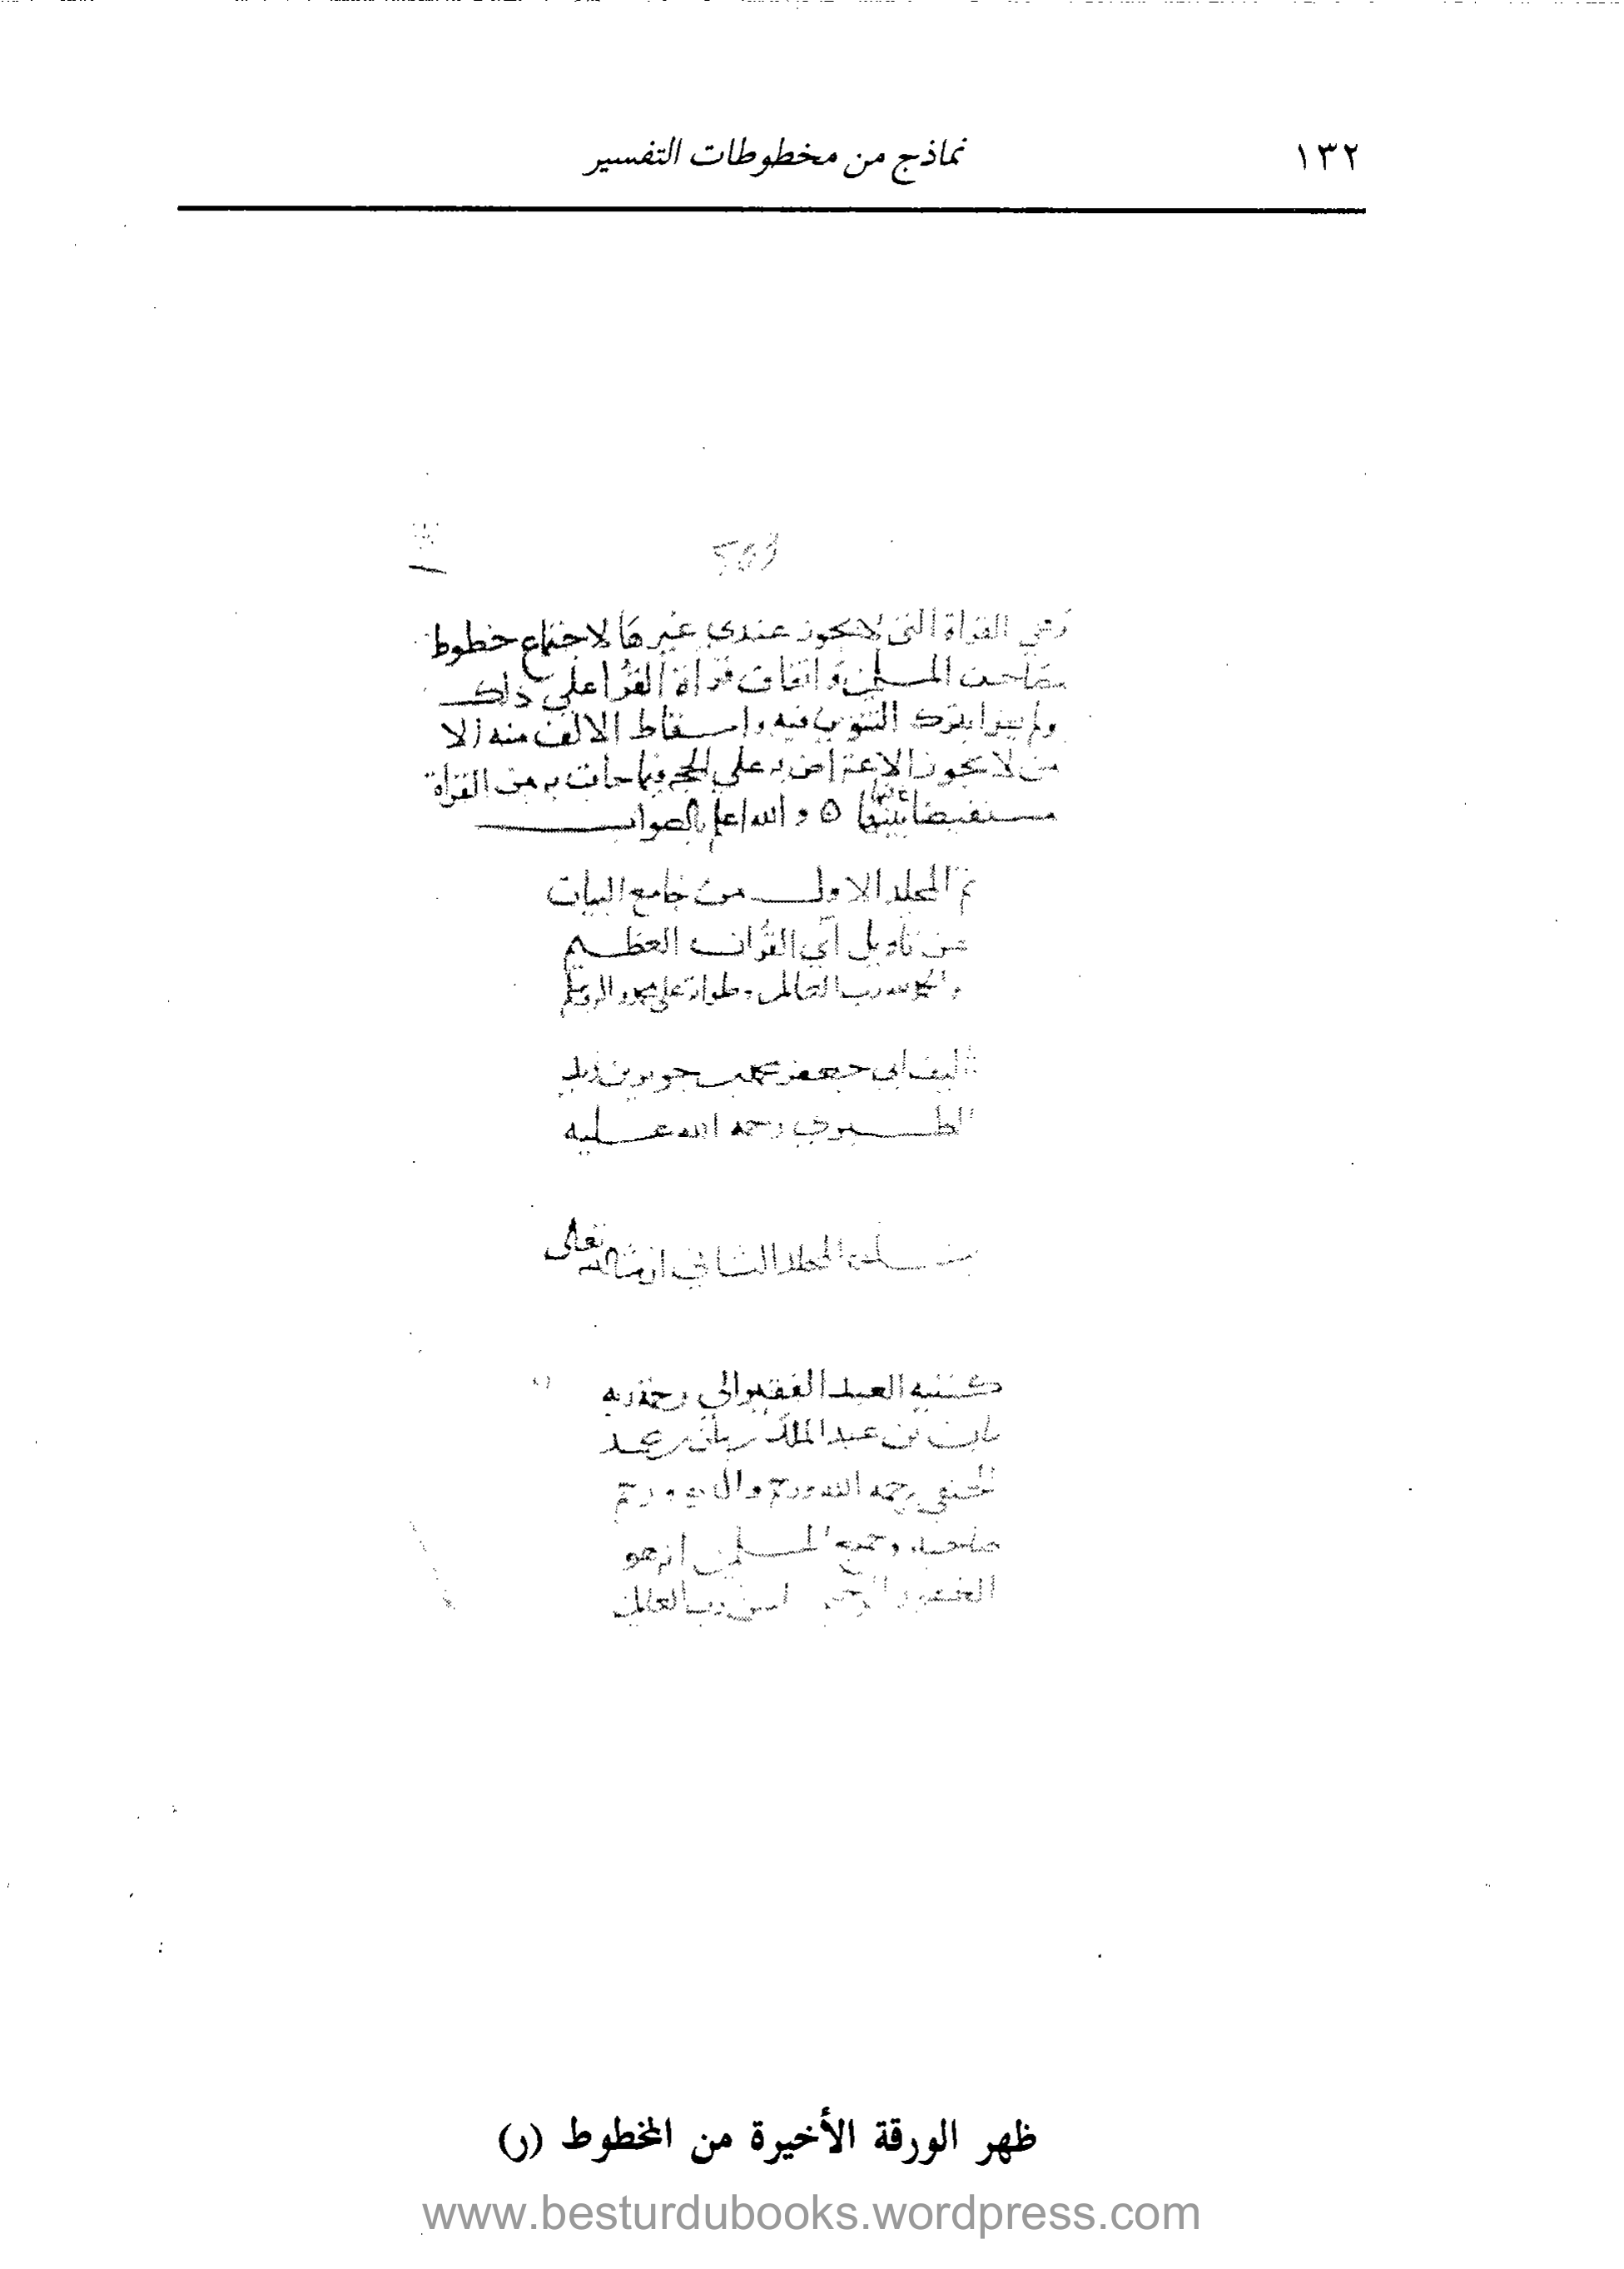 ١٣٢
نماذج من مخطوطات التفسير
وهي القراة التي لا يجوز عندي غيرها لاجتماع خطوط
مصاحف المسلمين واتفاق قراة القرا علي ذلك
ولم يقرا بترك التنوين فيه واسقاط الالف منه الا
من لا يجوز الاعتراض به علي الحجة فيما جات به من القراة
مستفيضا بينها ٥ والله اعلم بالصواب
تم المجلد الاول من جامع البيان
عن تاويل آي القران العظيم
والحمد لله رب العالمين
تاليف ابي جعفر محمد بن جرير بن يزيد
الطبري رحمه الله عليه
المجلد الثاني ان شا الله تعالى
كتبه العبد الفقير الي رحمة ربه
بن عبد الملك
الحنفي رحمه الله ورحم والديه ورحم
وجميع المسلمين انه هو
الغفور الرحيم امين رب العالمين
ظهر الورقة الأخيرة من المخطوط (ر)
www.besturdubooks.wordpress.com